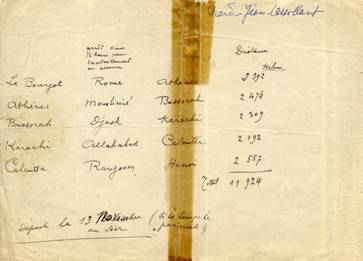 Jean Assollant
arrêt d'une
½ heure pour
ravitaillement
en essence
Distance
Kilom.
Le Bourget Rome Athènes 2 392
Athènes Mouslimié Bassorah 2 474
Bassorah Djask Karachi 2 309
Karachi Allahabad Calcutta 2 192
Calcutta Rangoon Hanoi 2 557
Total 11 924
Départ le 13 Novembre (si le temps le
au soir permet)